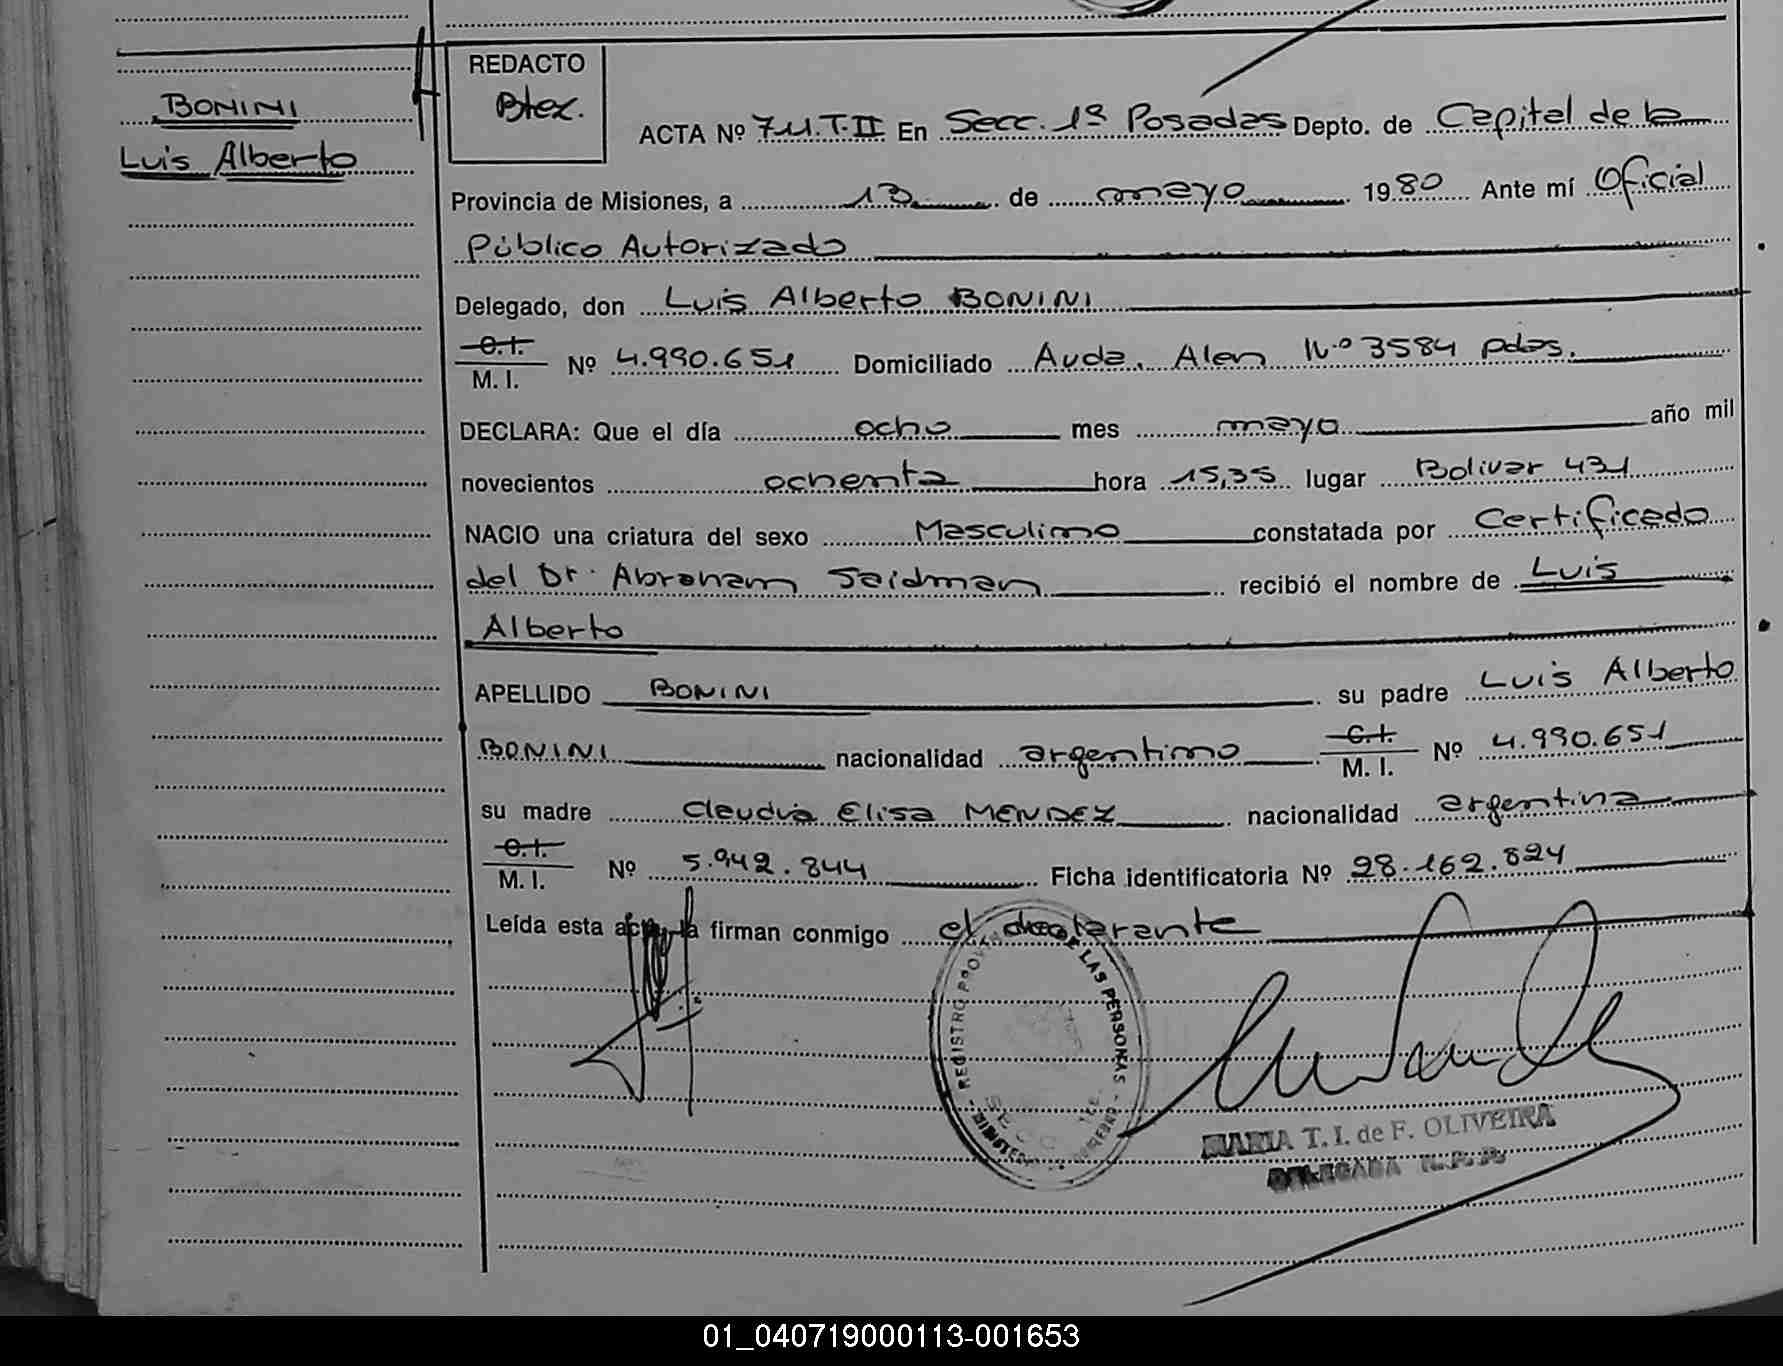 BONINI
Luis Alberto
REDACTO
Btez.
ACTA Nº 711.T.II En Secc. 1ª Posadas Depto. de Capital de la
Provincia de Misiones, a 13 de mayo 1980 Ante mí Oficial
Público Autorizado
Delegado, don Luis Alberto BONINI
C.I.
M. I. Nº 4.990.651 Domiciliado Avda. Alen Nº 3584 pdas.
DECLARA: Que el día ocho mes mayo año mil
novecientos ochenta hora 15,35 lugar Bolivar 431
NACIO una criatura del sexo Masculino constatada por Certificado
del Dr. Abraham Saidman recibió el nombre de Luis
Alberto
APELLIDO BONINI su padre Luis Alberto
BONINI nacionalidad argentino C.I.
M. I. Nº 4.990.651
su madre Claudia Elisa MENDEZ nacionalidad argentina
C.I.
M. I. Nº 5.942.844 Ficha identificatoria Nº 28.162.824
Leída esta acta, la firman conmigo el declarante
REGISTRO PROV. DE LAS PERSONAS
MARIA T. I. de F. OLIVEIRA
DELEGADA R.P.P.
01_040719000113-001653